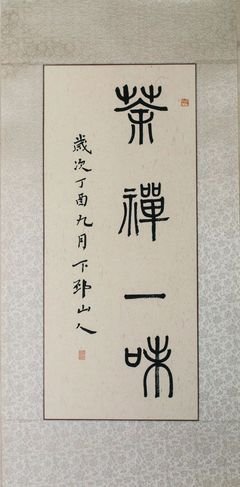 茶禪一味
歲次丁酉九月下邳山人